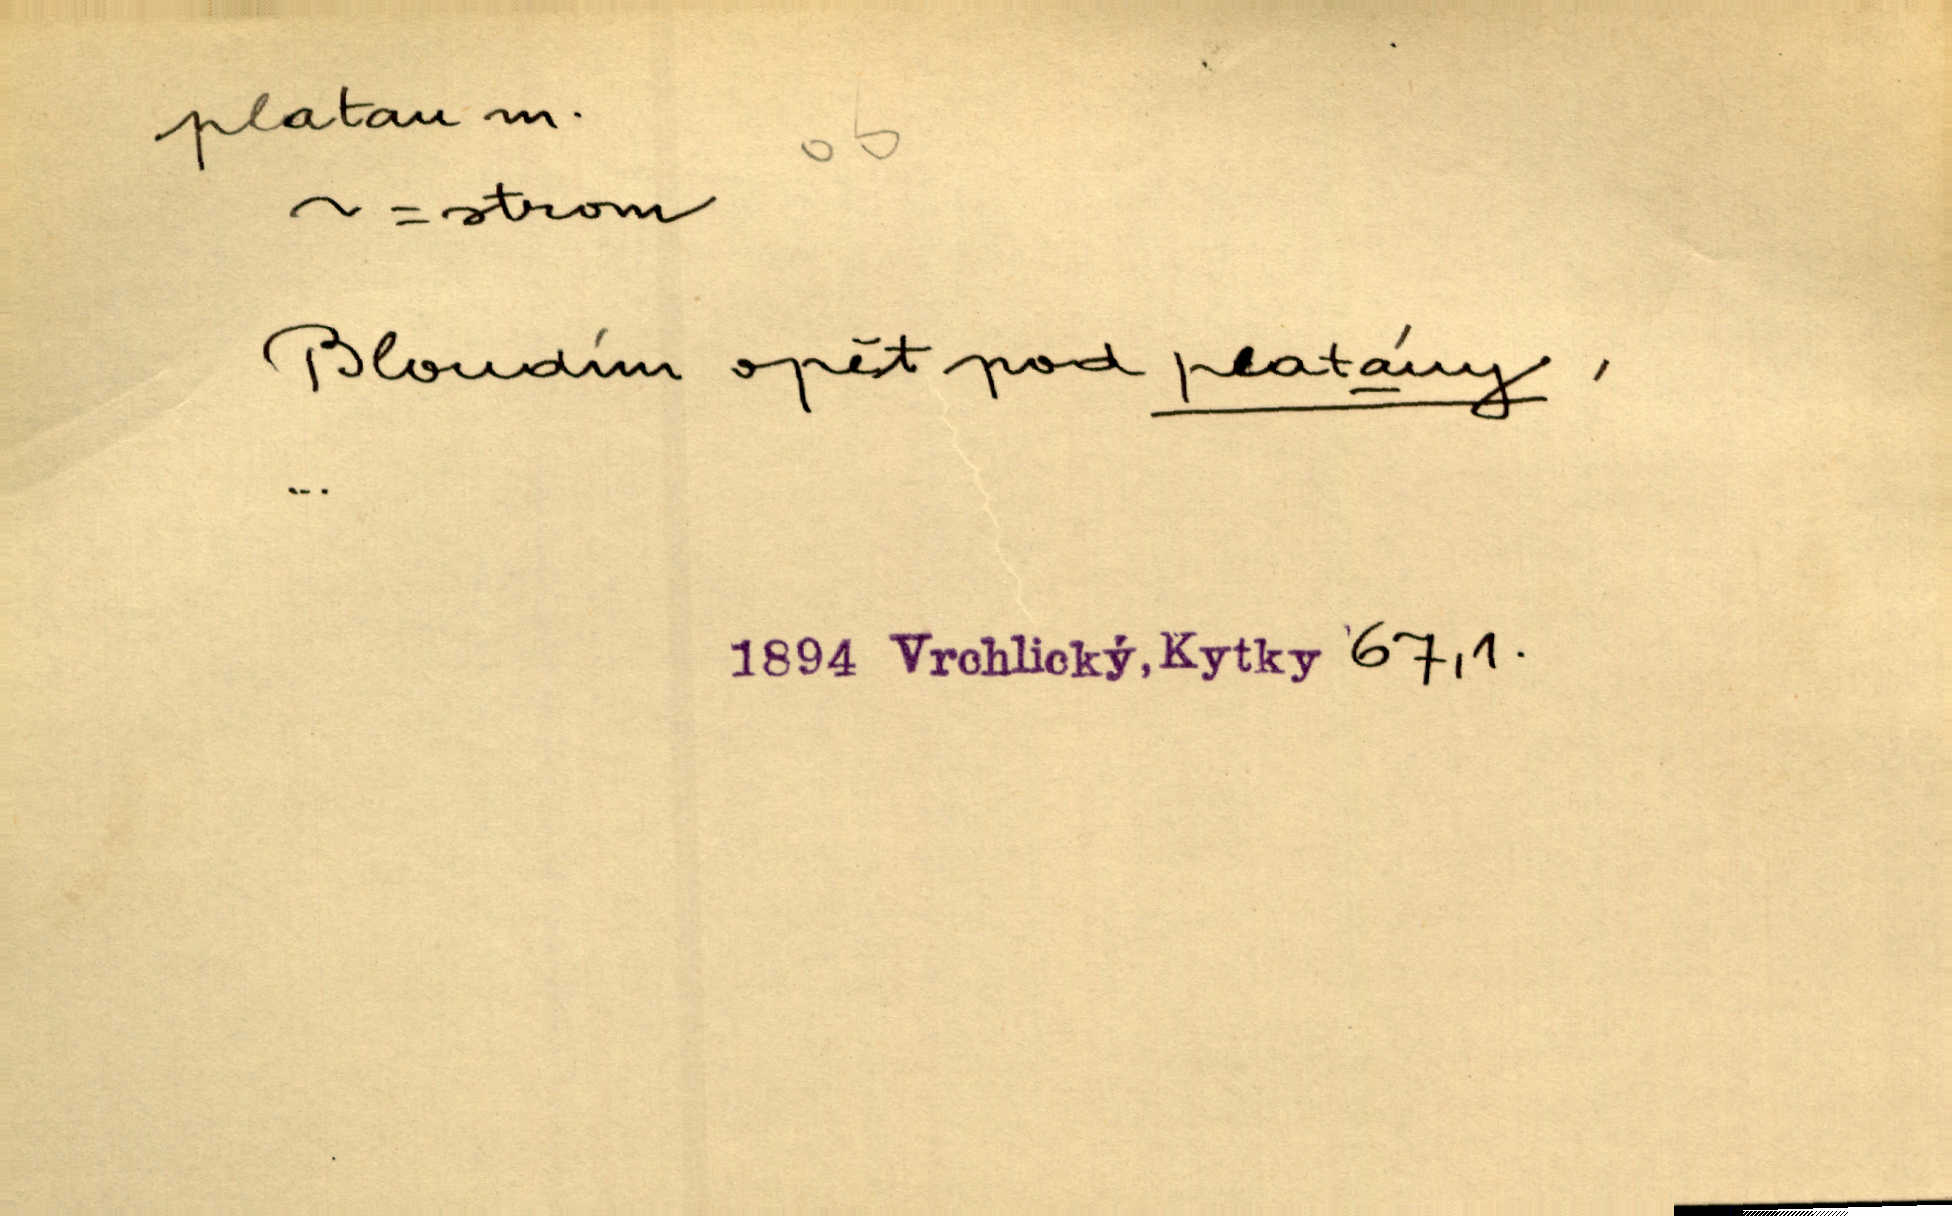 platan m.
ob
~ = strom
Bloudím opět pod platány,
...
1894 Vrchlický, Kytky 67,1.